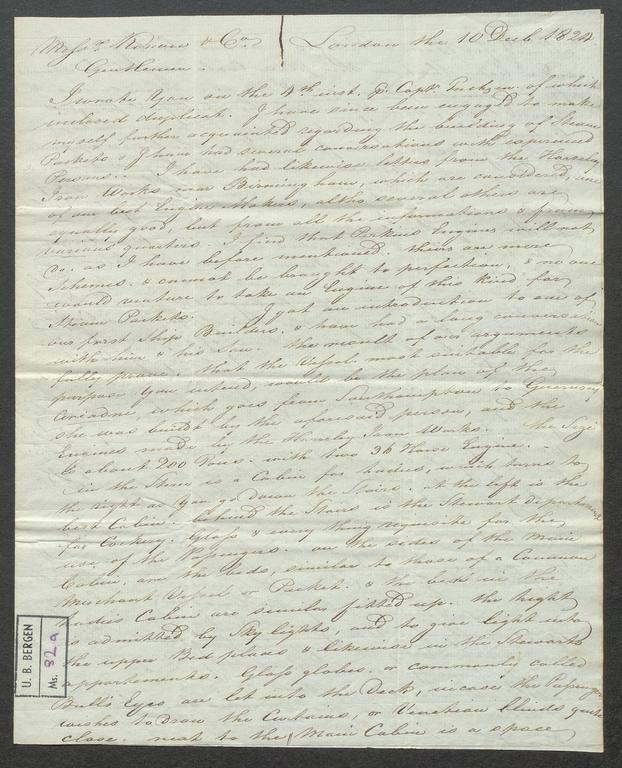 Messrs. & Co. London the 10 Decb. 1824
Gentlemen.
I wrote You on the 4th inst. pr. Capt. of which
inclosed duplicat. I have since been engaged to make
myself further acquainted regarding the building of Steam
Packets & I have had several conversations with experienced
Persons. I have had likewise letters from the Horseley
Iron Works near Birmingham, which are considered, one
of our best Engine Makers, altho several others are
equally good, but from all the informations & from
various quarters. I find that Perkins Engines will not
Do. as I have before mentioned. theirs are mere
Schemes. & cannot be brought to perfection, & no one
would venture to take an Engine of this Kind for
Steam Packets. I got an introduction to one of
our first Ship Builders. & have had a long conversation
with him & his Son. the result of our arguments
fully prove, that the Vessel most suitable for the
purpose You intend, would be the plan of the
Ariadne, which goes from Southampton to Guernsey
She was build by the aforesaid person, and the
Engines made by the Horseley Iron Works. the Size
is about 200 Tons. with two 36 Horse Engine.
in the Stern is a Cabin for Ladies, which turns to
the right as You go down the Stairs. at the left is the
best Cabin. behind the Stairs is the Stewart department
for Cooking. Glass & every thing requisite for the
use of the Passengers. on the sides of the Main
Cabin, are the beds, similar to those of a Common
Merchant Vessel or Packet. & the beds in the
Ladies Cabin are similar fitted up. the light
is admitted by Sky lights, and to give light into
the upper Bed places & likewise in the Stewarts
appartements. Glass globes. or commonly called
Bull's Eyes are let into the Deck, incase the Passengers
wishes to draw the Curtains, or Venetian Blinds quite
close. next to the Main Cabin is a space
U. B. BERGEN
Ms. 82 a